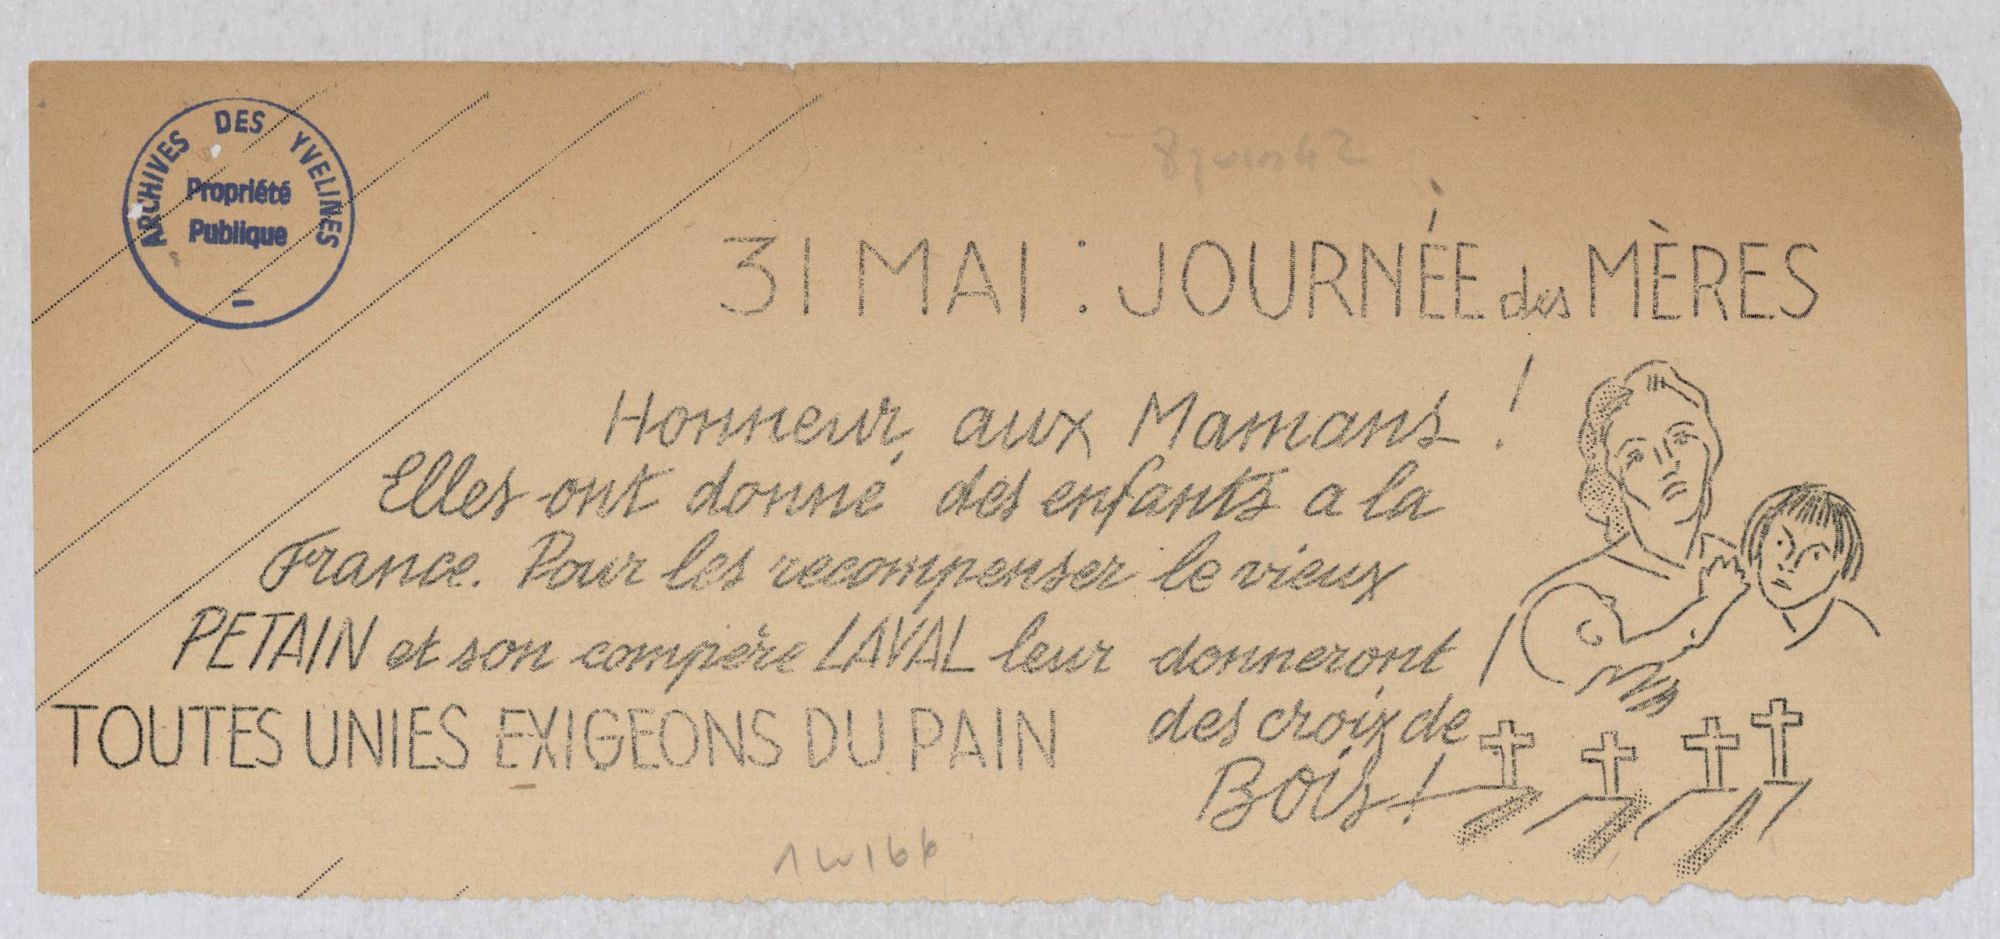 ARCHIVES DES YVELINES
Propriété
Publique
8 juin 42
31 MAI : JOURNÉE des MÈRES
Honneur aux Mamans !
Elles ont donné des enfants a la
France. Pour les recompenser le vieux
PETAIN et son compère LAVAL leur donneront
des croix de
Bois !
TOUTES UNIES EXIGEONS DU PAIN
1W166